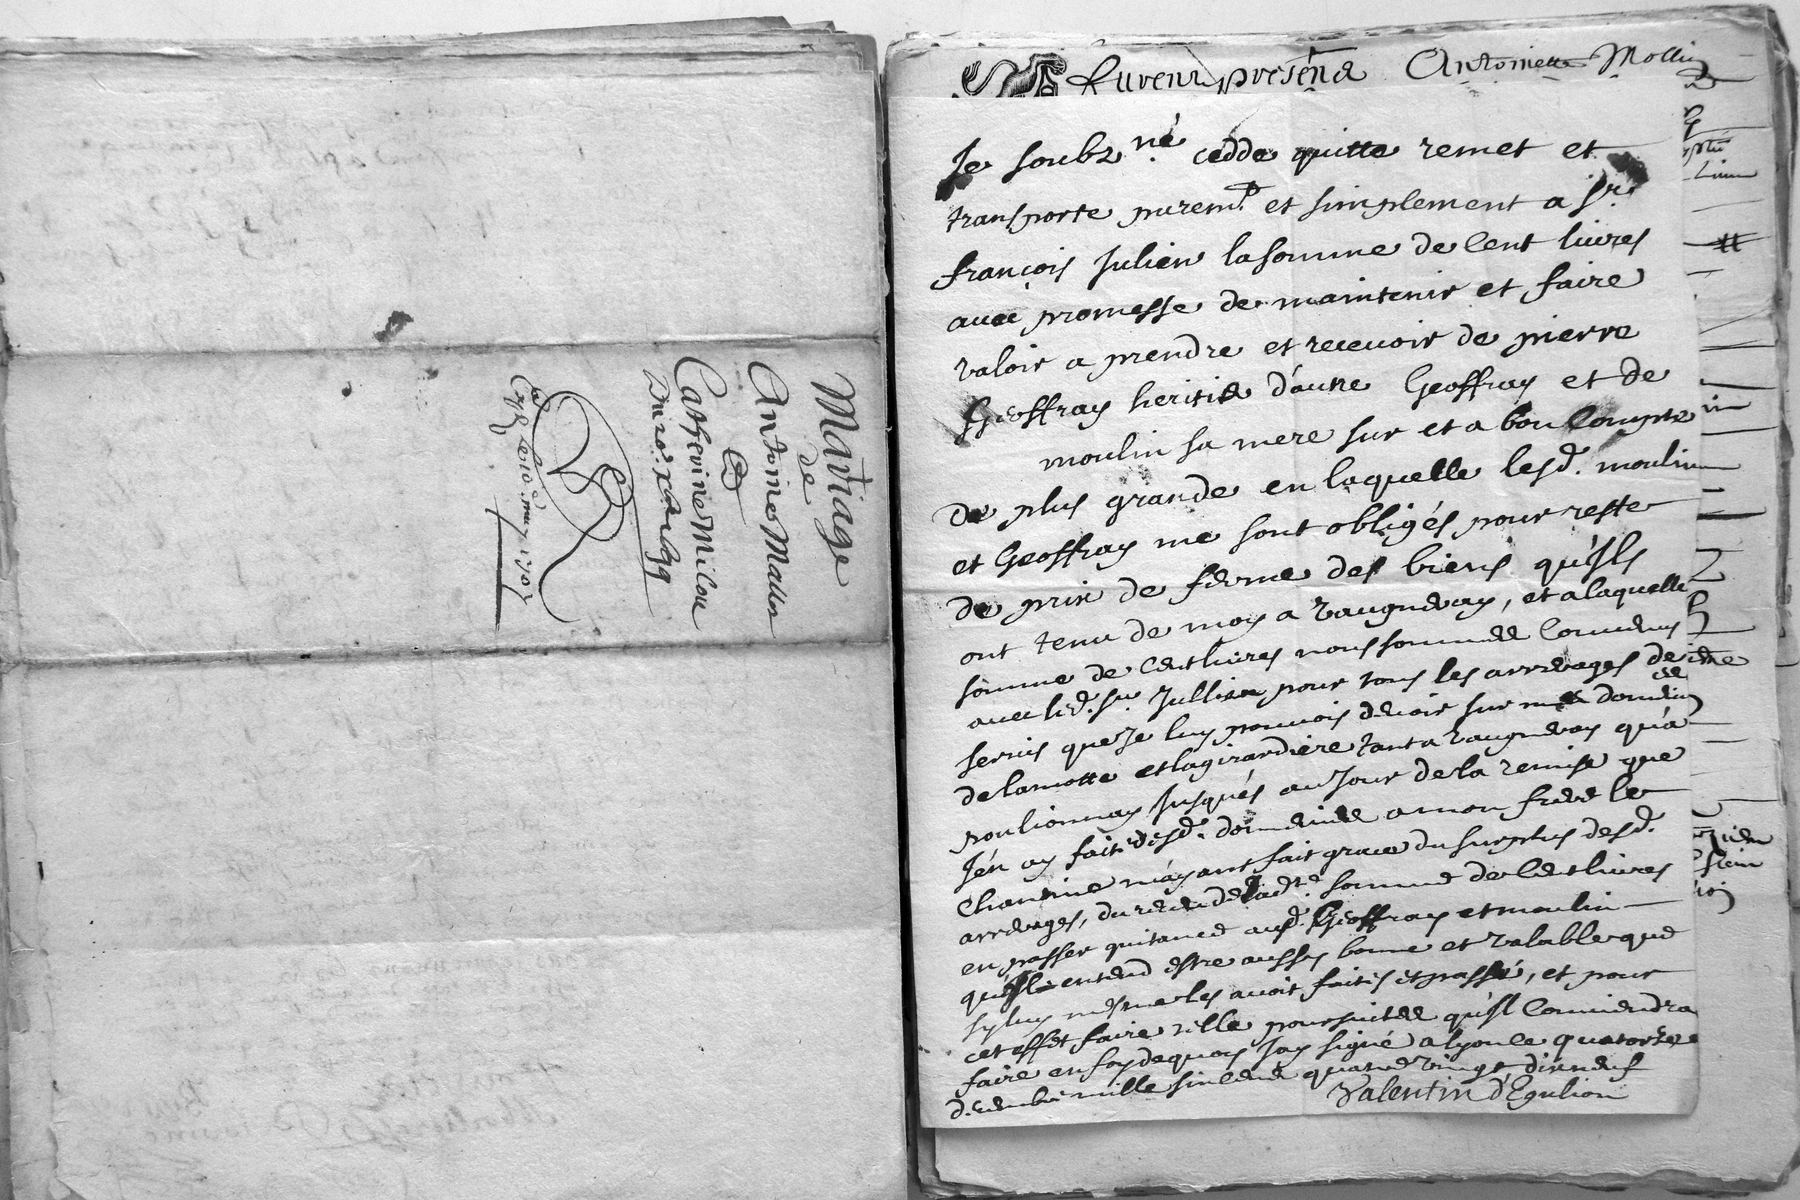 Mariage
de
Antoine Mallen
&
Catherine Milou
Du 10e. xbre 1699
furent présens Antoinette Mollin
Je soubzné cedde quitte remet et
transporte puremt. et simplement a sr.
françois Julien la somme de Cent livres
avec promesse de maintenir et faire
valoir a prendre et recevoir de pierre
Geoffray heritier d'autre Geoffray et de
moulin sa mere sur et a bon Compte
de plus grande en laquelle lesd. moulin
et Geoffray me sont obligés pour reste
de prix de ferme des biens qu'ils
ont tenu de moy a vaugneray, et a laquelle
somme de Cent livres nous sommes Convenus
avec led. sr. Jullien pour tous les arrerages de
servis que Je luy pouvois devoir sur mes domaines
de lamotte et lagirardiere tant a vaugneray qu'a
poulionnay Jusques au Jour de la remise que
J'en ay faite desd. domaines a mon frere le
Chanoine m'ayant fait grace du surplus desd.
arrerages, du receu de ladte. somme de Cent livres
en passer quitance ausd. Geoffray et moulin
qu'il entend estre aussy bonne et valable que
sy luy mesme les avoit faites et passé, et pour
cet effet faire telle poursuittes qu'il Conviendra
faire en foy de quoy Jay signé a lyon le quatorze
decembre mille six cens quatre vingt dixneuf
Valentin d'Egulion